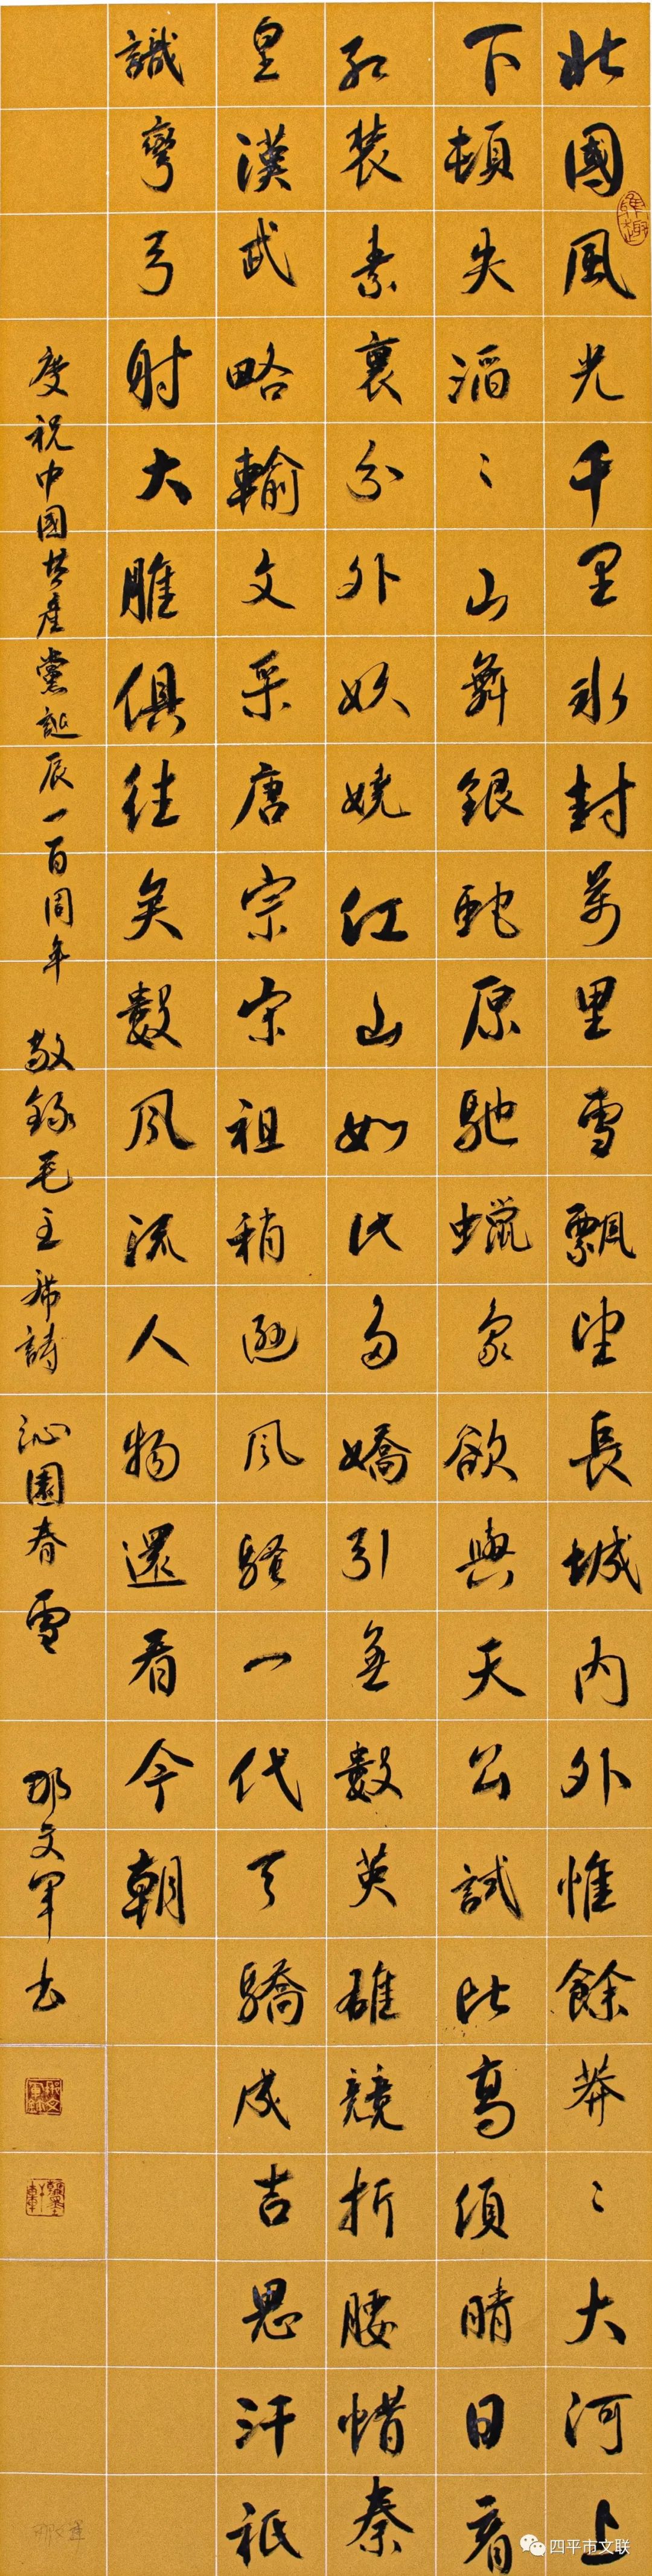 北國風光千里冰封萬里雪飄望長城内外惟餘莽〻大河上
下頓失滔〻山舞銀蛇原馳蠟象欲與天公試比高須晴日看
紅裝素裹分外妖嬈江山如此多嬌引無數英雄競折腰惜秦
皇漢武略輸文采唐宗宋祖稍遜風騷一代天驕成吉思汗祇
識彎弓射大雕俱往矣數風流人物還看今朝
慶祝中國共產黨誕辰一百周年 敬錄毛主席詩 沁園春雪 那文軍书
四平市文联